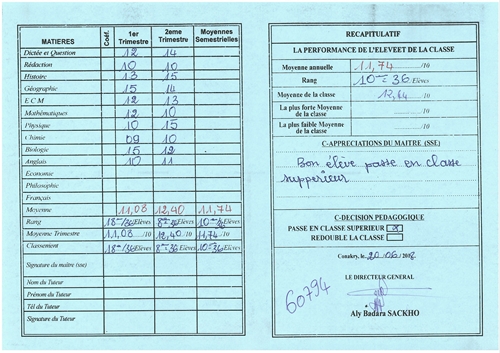 MATIERES Coéf. 1er Trimestre 2eme Trimestre Moyennes Semestrielles
Dictée et Question 12 14
Rédaction 10 10
Histoire 13 15
Géographie 15 14
E C M 12 13
Mathématiques 12 10
Physique 10 15
Chimie 09 10
Biologie 15 12
Anglais 10 11
Economie
Philosophie
Français
Moyenne 11,08 12,40 11,74
Rang 18e/36 Elèves 8e/36 Elèves 10e/36 Elèves
Moyenne Trimestre 11,08 /10 12,40 /10 11,74 /10
Classement 18e/36 Elèves 8e/36 Elèves 10e/36 Elèves
Signature du maître (sse)
Nom du Tuteur
Prénom du Tuteur
Tél du Tuteur
Signature du Tuteur
RECAPITULATIF
LA PERFORMANCE DE L'ELEVEET DE LA CLASSE
Moyenne annuelle 11,74 /10
Rang 10e/36 Elèves
Moyenne de la classe /10
La plus forte Moyenne de la classe /10
La plus faible Moyenne de la classe /10
C-APPRECIATIONS DU MAITRE (SSE)
Bon élève passe en classe
supperieur
C-DECISION PEDAGOGIQUE
PASSE EN CLASSE SUPERIEUR x
REDOUBLE LA CLASSE
Conakry, le 20/06/
LE DIRECTEUR GENERAL
60794
Aly Badara SACKHO